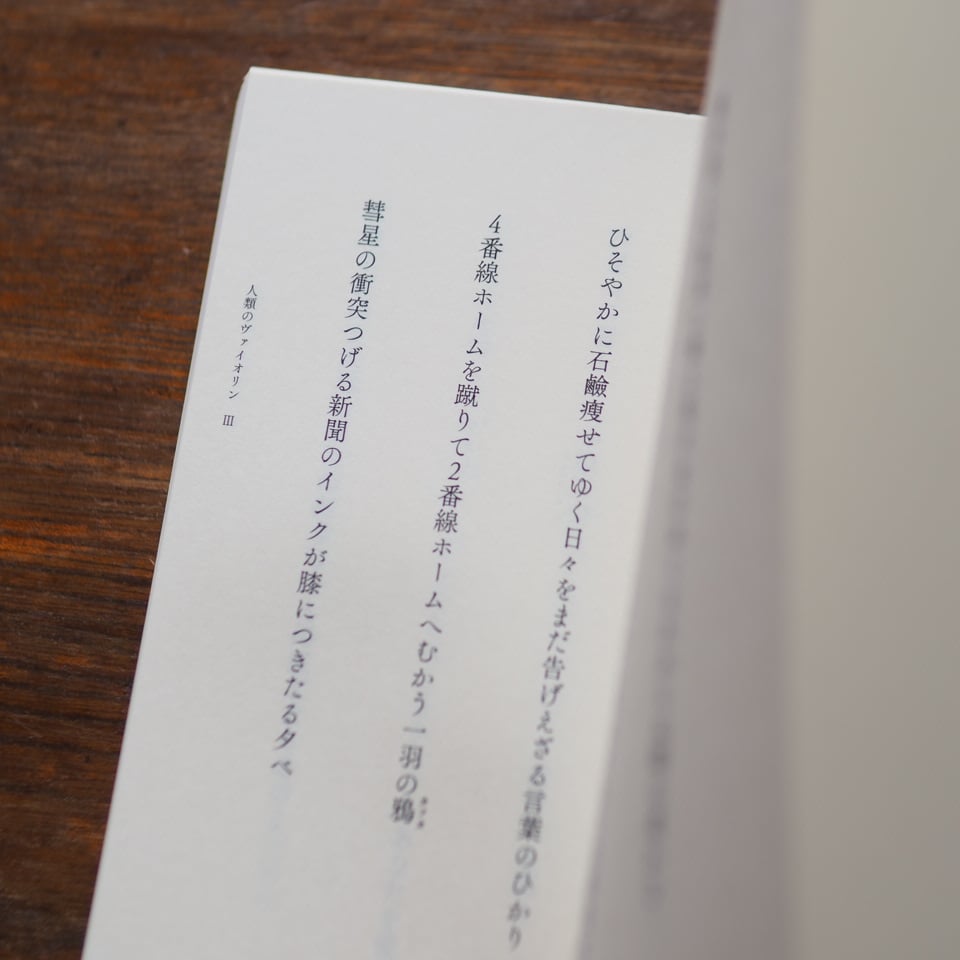 ひそやかに石鹼痩せてゆく日々をまだ告げえざる言葉のひかり
4番線ホームを蹴りて2番線ホームへむかう一羽の鴉
彗星の衝突つげる新聞のインクが膝につきたる夕べ
人類のヴァイオリン Ⅲ